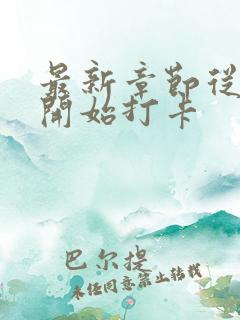 最新章節從
開始打卡
巴尔提
未经同意禁止转载